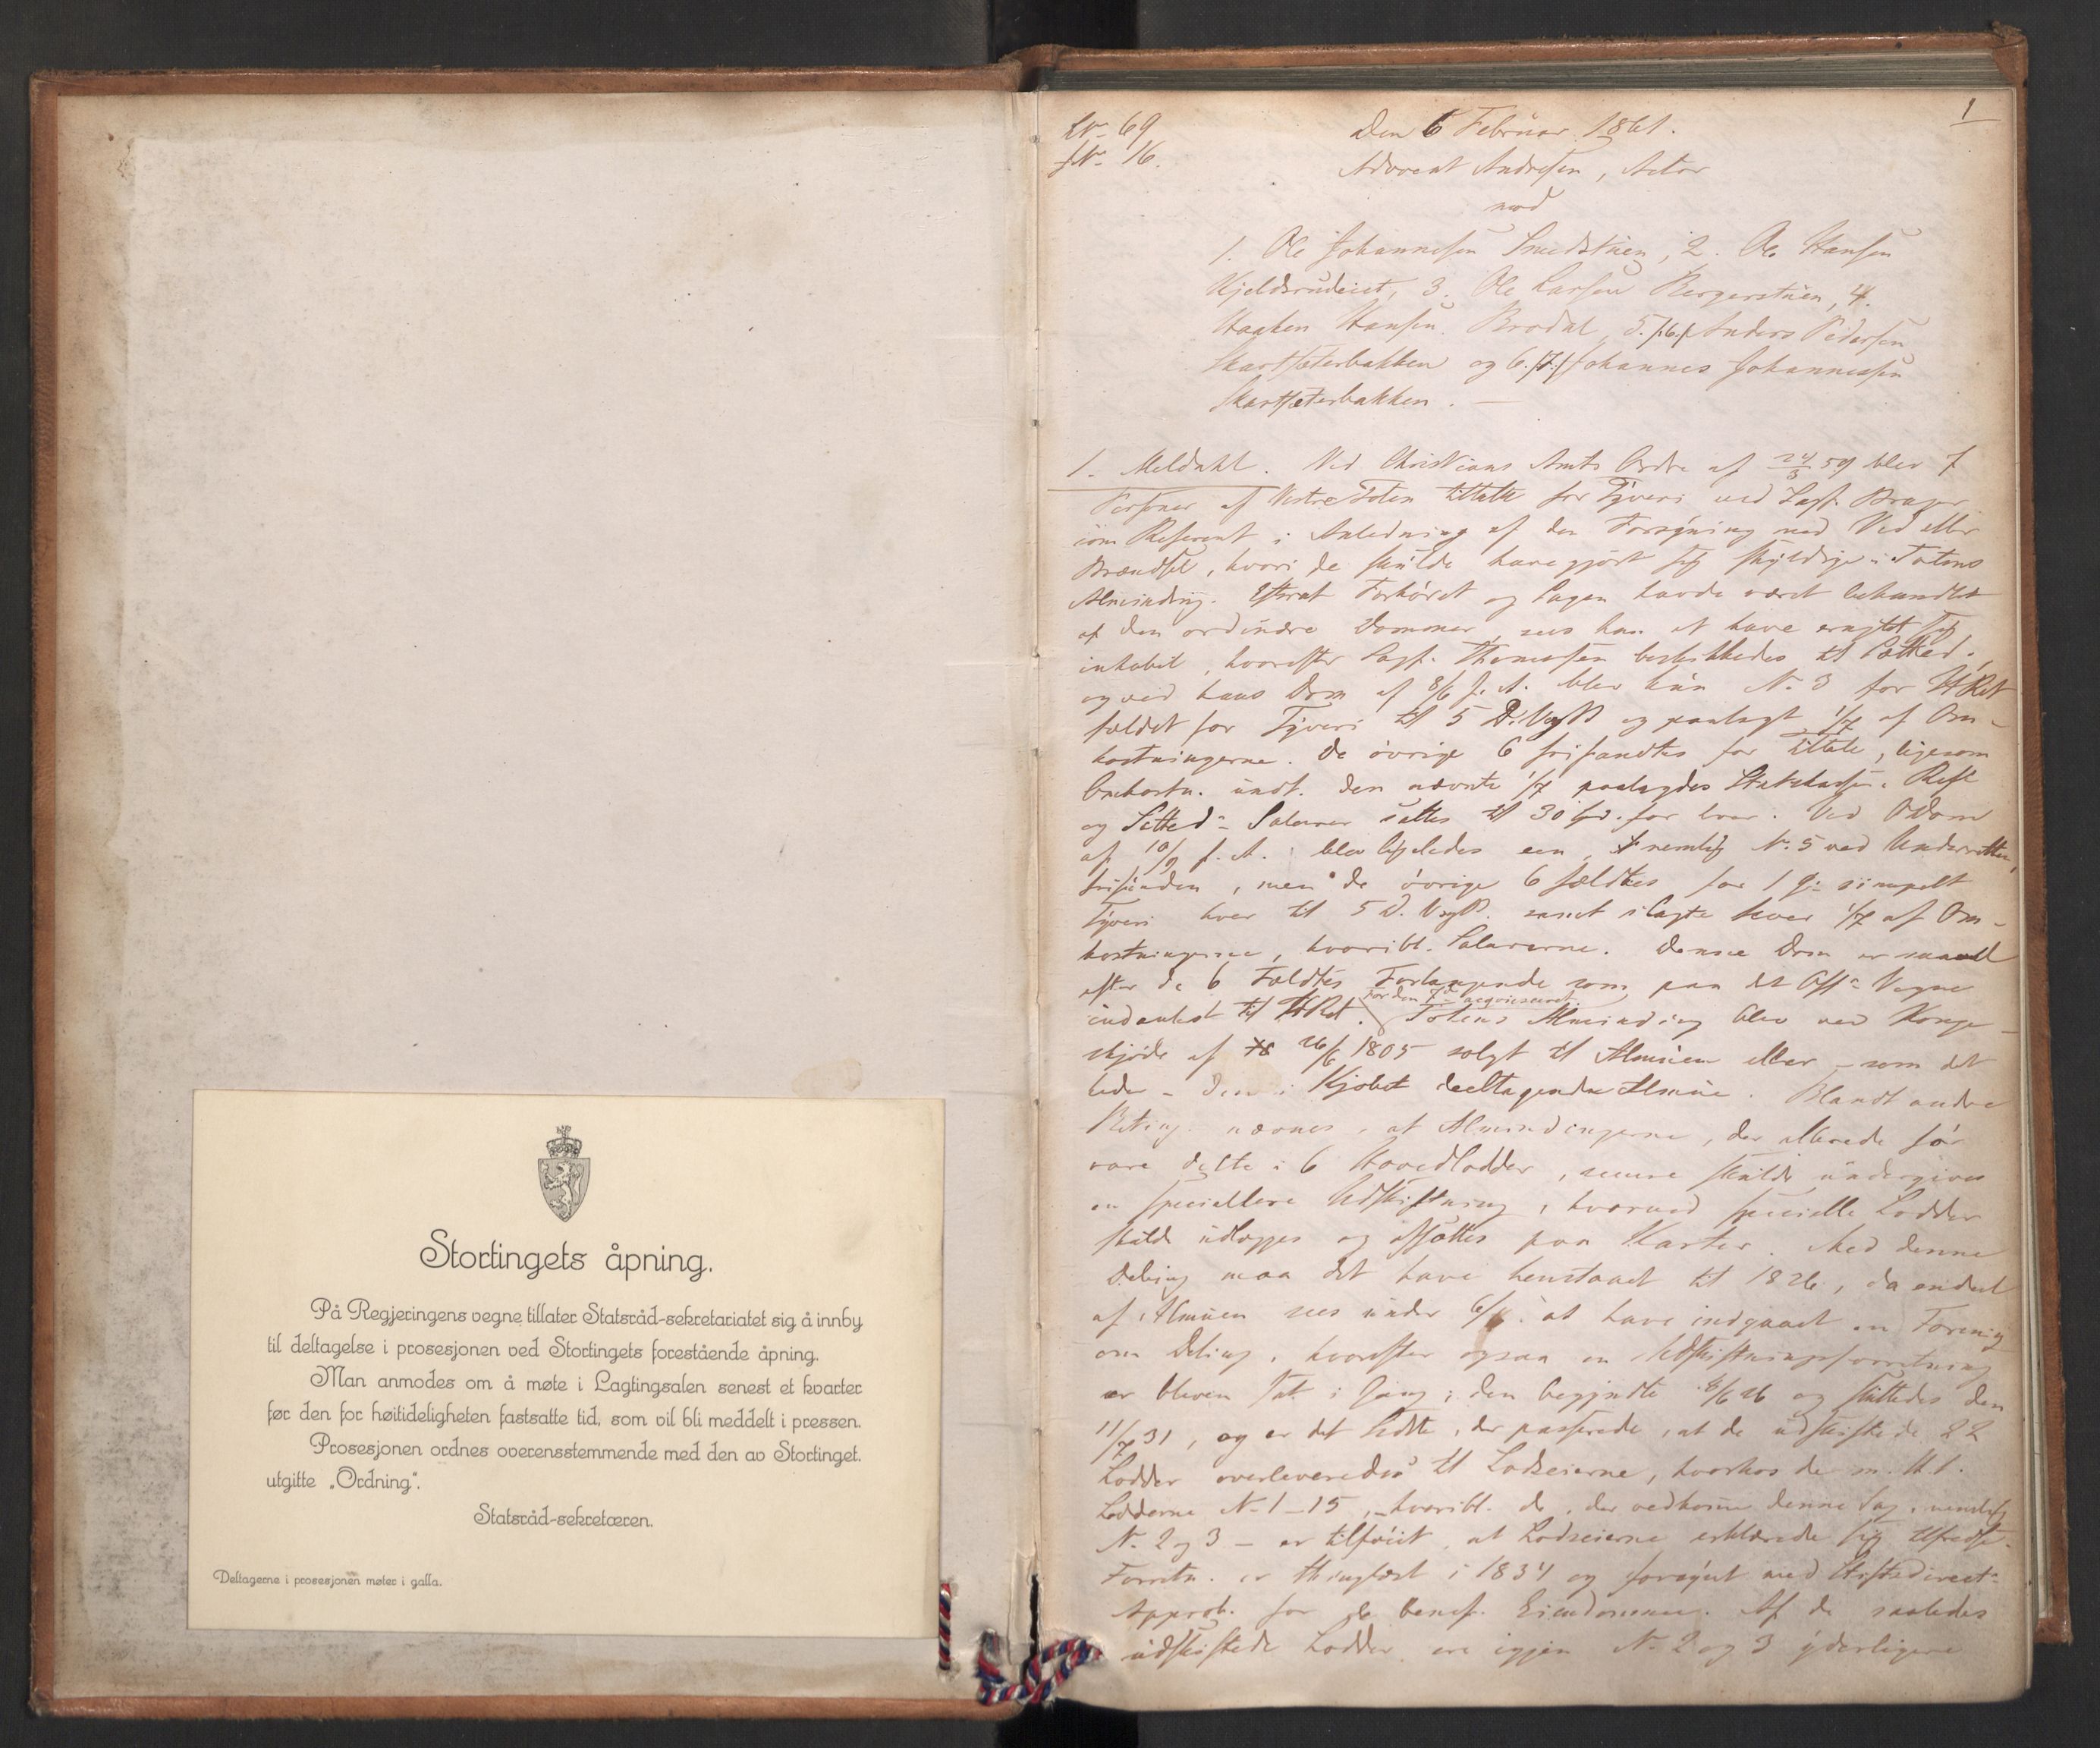 Stortingets åpning.
På Regjeringens vegne tillater Statsråd-sekretariatet sig å innby
til deltagelse i prosesjonen ved Stortingets forestående åpning.
Man anmodes om å møte i Lagtingsalen senest et kvarter
før den for høitideligheten fastsatte tid, som vil bli meddelt i pressen.
Prosesjonen ordnes overensstemmende med den av Stortinget.
utgitte „Ordning“.
Statsråd-sekretæren.
Deltagerne i prosesjonen møter i galla.
1
LNo 69
No 16.
Den 6 Februar 1861.
Advocat Andresen, Actor
mod
1. Ole Johannesen Smedstuen, 2. Ole Hansen
Kjeldsrudeiet, 3. Ole Larsen Bergerstuen, 4.
Haaken Hansen Brodal, 5. /:6.:/ Anders Pedersen
Skartsæterbakken og 6. /:7.:/ Johannes Johannessen
Skartsæterbakken. —
1. Meldahl. Ved Christians Amts Ordre af 24/3 59 blev 7
Personer af Vestre Toten tiltalte for Tyveri ved Sagf.
som Referent i Anledning af den Forsyning med Ved eller
Brændsel, hvori de skulde have gjort sig skyldige i Totens
Alminding. Efterat Forhöret og Sagen havde været behandlet
af den ordinære Dommer, sees han at have eragtet sig
inhabil, hvorefter Sagf. Thomessen beskikkedes til Sætted.,
og ved hans Dom af 8/6 f. A. blev kun No 3 for HRet
fældet for Tyveri til 5 D. V og B og paalagt 1/7 af Om-
kostningerne. De övrige 6 frifandtes for Tiltale, ligesom
Omkostn. undt. den nævnte 1/7 paalagdes Statskassen. Ref.
og Sætted. Salarier sattes til 30 Spd. for hver. Ved ODom
af 10/9 f. A. blev ligeledes een, nemlig No 5 ved Underretten,
frifunden, men de övrige 6 fældtes for 1 G. simpelt
Tyveri hver til 5 D. V og B. samt ilagte hver 1/7 af Om-
kostningerne, hvoribl. Salarierne. Denne Dom er saavel
efter de 6 Fældtes Forlangende som paa det Off. Vegne
for den 7de acquiesceret.
indanket til HRet. Totens Alminding blev ved Konge-
skjöde af 26/6 1805 solgt til Almuen eller – som det
heder – den i Kjöbet deeltagende Almue. Blandt andre
Beting. nævnes, at Almindingerne, der allerede för
vare delte i 6 Hovedlodder, senere skulde undergives
en speciellere Udskiftning, hvorved specielle Lodder
skulde udlægges og afsættes paa Karter. Med denne
Deling maa det have henstaaet til 1826, da endeel
af Almuen sees under 6/ at have indgaaet en Forening
om Deling, hvorefter ogsaa en Udskiftningsforretning
er bleven sat i Gang; den begyndte 8/6 26 og sluttedes den
11/7 31, og er det Sidste, der passerede, at de udskiftede 22
Lodder overleveredes til Lodseierne, hvorhos de m. H. t.
Lodderne No 1-15, – hvoribl. de, der vedkomme denne Sag, nemlig
No 2 og 3 – er tilföiet, at Lodseierne erklærede sig tilfredse.
Forretn. er thinglæst i 1834 og forsynet med Stiftsdirect.
Approb. for de benef. Eiendomme. Af de saaledes
udskiftede Lodder ere igjen No 2 og 3 yderligere